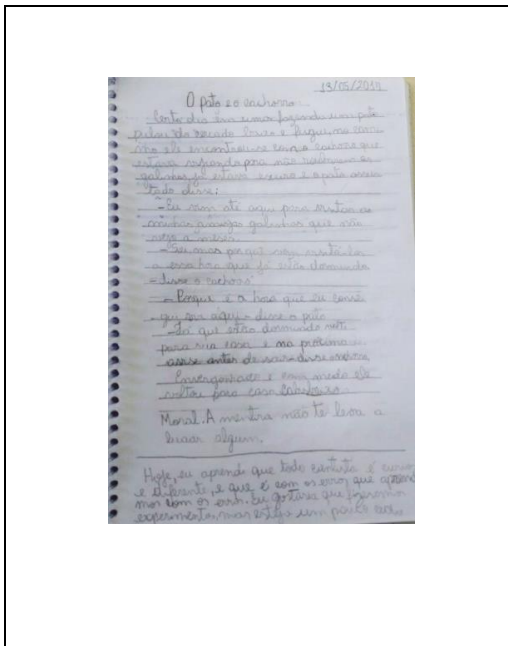 13/05/2019
O pato e o cachorro
Certo dia em uma fazenda um pato
pulou do cercado e fugiu, no cami
nho ele encontrou-se com o cachorro que
estava para não
galinhas, já estava escuro e o pato
tudo disse:
- Eu vim até aqui para visitar as
minhas amigas galinhas que não
vejo a meses.
- mas porque vem visitá-las
a essa hora que já estão dormindo
- disse o cachorro
- Porque é a hora que eu conse
gui vir aqui - disse o pato
- Já que estão dormindo volte
para sua casa e na próxima
avise antes de sair - disse
Envergonhado e com medo ele
voltou para casa cabisbaixo.
Moral. A mentira não te leva a
lugar algum.
Hoje, eu aprendi que todo cientista é curio
e diferente, e que é com os erros que apren
mos com os erros. Eu gostaria que fizéssemos
experimentos, mas um pouco